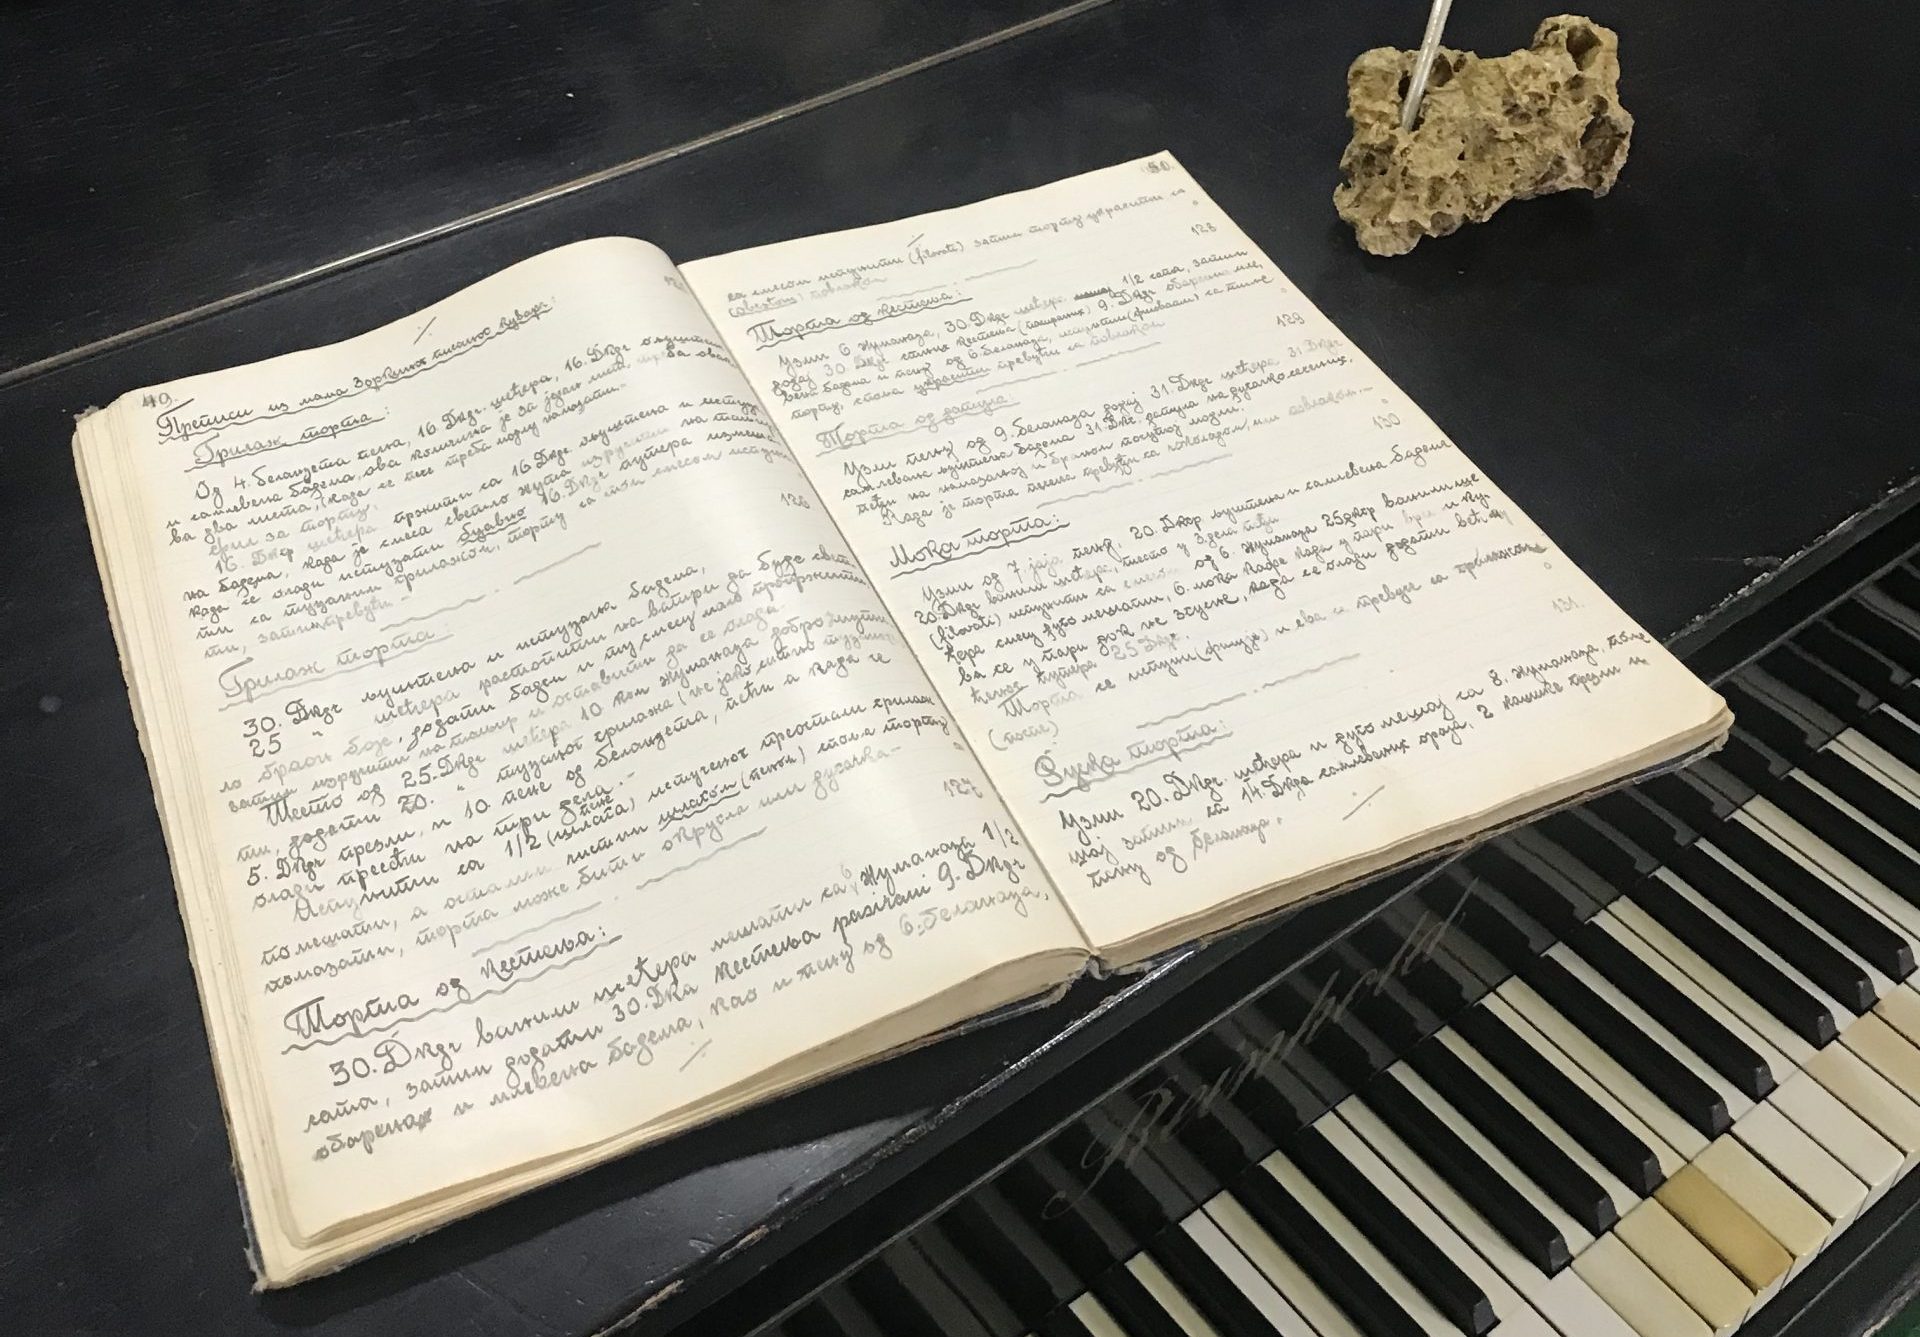 49.
Преписи из мама Зоркиног писаног кувара:
Грилаж торта:
Од 4. беланцета пена, 16. Дкгр. шећера, 16. Дкгр ољуштена
и самлевена бадема, ова количина је за један лист, треба овак
ва два листа, (када се пече треба поклу намазати.
Фил за торту.
16. Дкгр шећера пржити са 16 Дкгр ољуштена и
на бадема, када је смеса светло жута изручити на
када се олади истуцати 16. Дкгр путера измеша
ти са туцаним грилажом, торту са том смесом
ти, затим превући —
126
Грилаж торта:
30. Дкгр ољуштена и истуцана бадема,
25 " шећера растопити на ватри да буде свет
ло браон боје, додати бадем и ту смесу мало пропржити
затим изручити на и оставити да се олади.
Тесто од 25. Дкгр шећера 10 ком жуманаца добро мути
ти, додати 20. " туцаног грилажа (не јако ситно туцана
5. Дкгр презли, и 10 пене од беланцета, пећи а када се
олади пресећи на три дела. —
Испунити са 1/2 (шлага) пене истученог преостали грилаж
помешати, а остали чистим шлагом (пеном) споља торту
помазати, торта може бити округла или дугачка —
127
Торта од кестења:
30. Дкгр ванили шећера мешати са 6 жуманаца 1/2
сата, затим додати 30. Дка кестења 9. Дкгр
обарена и млевена бадема, као и пену од 6. беланаца,
50.
са смесом испунити (filovati) затим торту украсити са
повлаком
128
Торта од кестења:
Узми 6 жуманаца, 30. Дкгр шећера 1/2 сата, затим
додај 30 Дкгр кестена (пасираних) 9. Дкгр обарена мле,
вена бадема и пену од 6. беланаца, испунити (филовати) са тиме
торту, споља украсити превући са повлаком
129
Торта од датула:
Узми пену од 9. беланаца додај 31. Дкгр шећера 31 Дкгр
самлевана љуштена бадема 31. Дкг. датула на дугачко сечених,
пећи на намазаној и брашном посутој модли.
Када је торта печена превући са чоколадом, или повлаком. —
130
Мока торта:
Узми од 7. јаја пену, 20. Дкгр љуштена и самлевена бадема
20. Дкгр ванили шећера, тесто у 3 дела пећи
(filovati) испунити са смесом од 6. жуманаца 25 дкгр ванили ше
ћера смесу дуго мешати, 6. мока кафе када у пари ври и ку,
ва се у пари док не згусне, када се олади додати већ
пенос путера 25 Дкгр.
Торта се испуни (филује) и ева се превуче са грилажом
(поспе)
131.
Руска торта:
Узми 20. Дкгр. шећера и дуго мешај са 8. жуманаца,
шај затим са 14. Дкгр самлевених ораја, 2 кашике и
пену од беланаца.